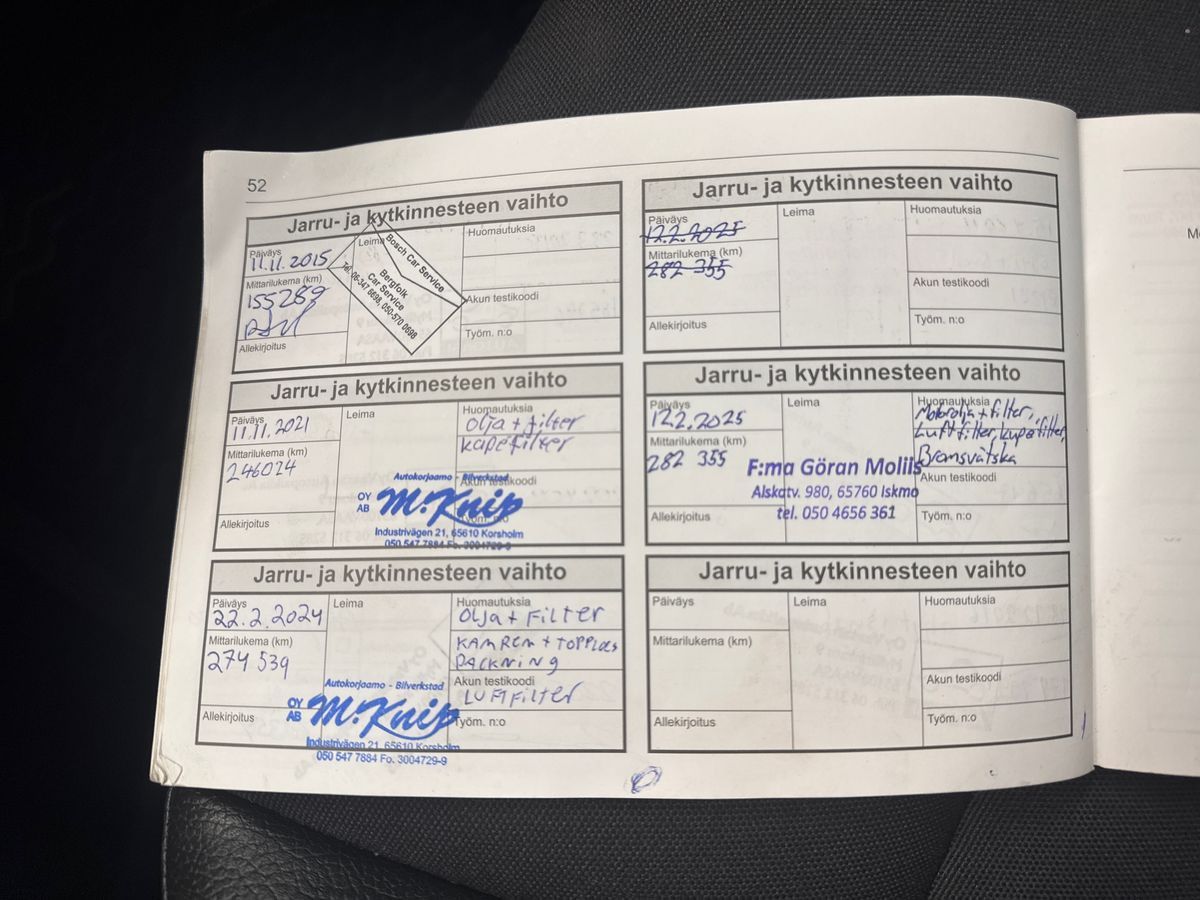 52
Jarru- ja kytkinnesteen vaihto
Päiväys
11.11.2015
Mittarilukema (km)
155289
Allekirjoitus
Leima
Bosch Car Service
Bergfolk
Car Service
Tel. 06-347 6698, 050-570 0698
Huomautuksia
Akun testikoodi
Työm. n:o
Jarru- ja kytkinnesteen vaihto
Päiväys
11.11.2021
Mittarilukema (km)
246024
Allekirjoitus
Leima
Huomautuksia
olja + filter
kupefilter
Akun testikoodi
Työm. n:o
Autokorjaamo - Bilverkstad
OY
AB
M.Knip
Industrivägen 21, 65610 Korsholm
050 547 7884 Fo. 3004729-9
Jarru- ja kytkinnesteen vaihto
Päiväys
22.2.2024
Mittarilukema (km)
274 539
Allekirjoitus
Leima
Huomautuksia
Olja + FILTER
KAMREM + TOPPLOCS
PACKNING
Akun testikoodi
LUFTFILTER
Työm. n:o
Autokorjaamo - Bilverkstad
OY
AB
M.Knip
Industrivägen 21, 65610 Korsholm
050 547 7884 Fo. 3004729-9
Jarru- ja kytkinnesteen vaihto
Päiväys
12.2.2025
Mittarilukema (km)
282 355
Allekirjoitus
Leima
Huomautuksia
Akun testikoodi
Työm. n:o
Jarru- ja kytkinnesteen vaihto
Päiväys
12.2.2025
Mittarilukema (km)
282 355
Allekirjoitus
Leima
Huomautuksia
Motorolja + filter,
Luftfilter, kupefilter,
Bromsvätska
Akun testikoodi
Työm. n:o
F:ma Göran Molils
Alskatv. 980, 65760 Iskmo
tel. 050 4656 361
Jarru- ja kytkinnesteen vaihto
Päiväys
Mittarilukema (km)
Allekirjoitus
Leima
Huomautuksia
Akun testikoodi
Työm. n:o